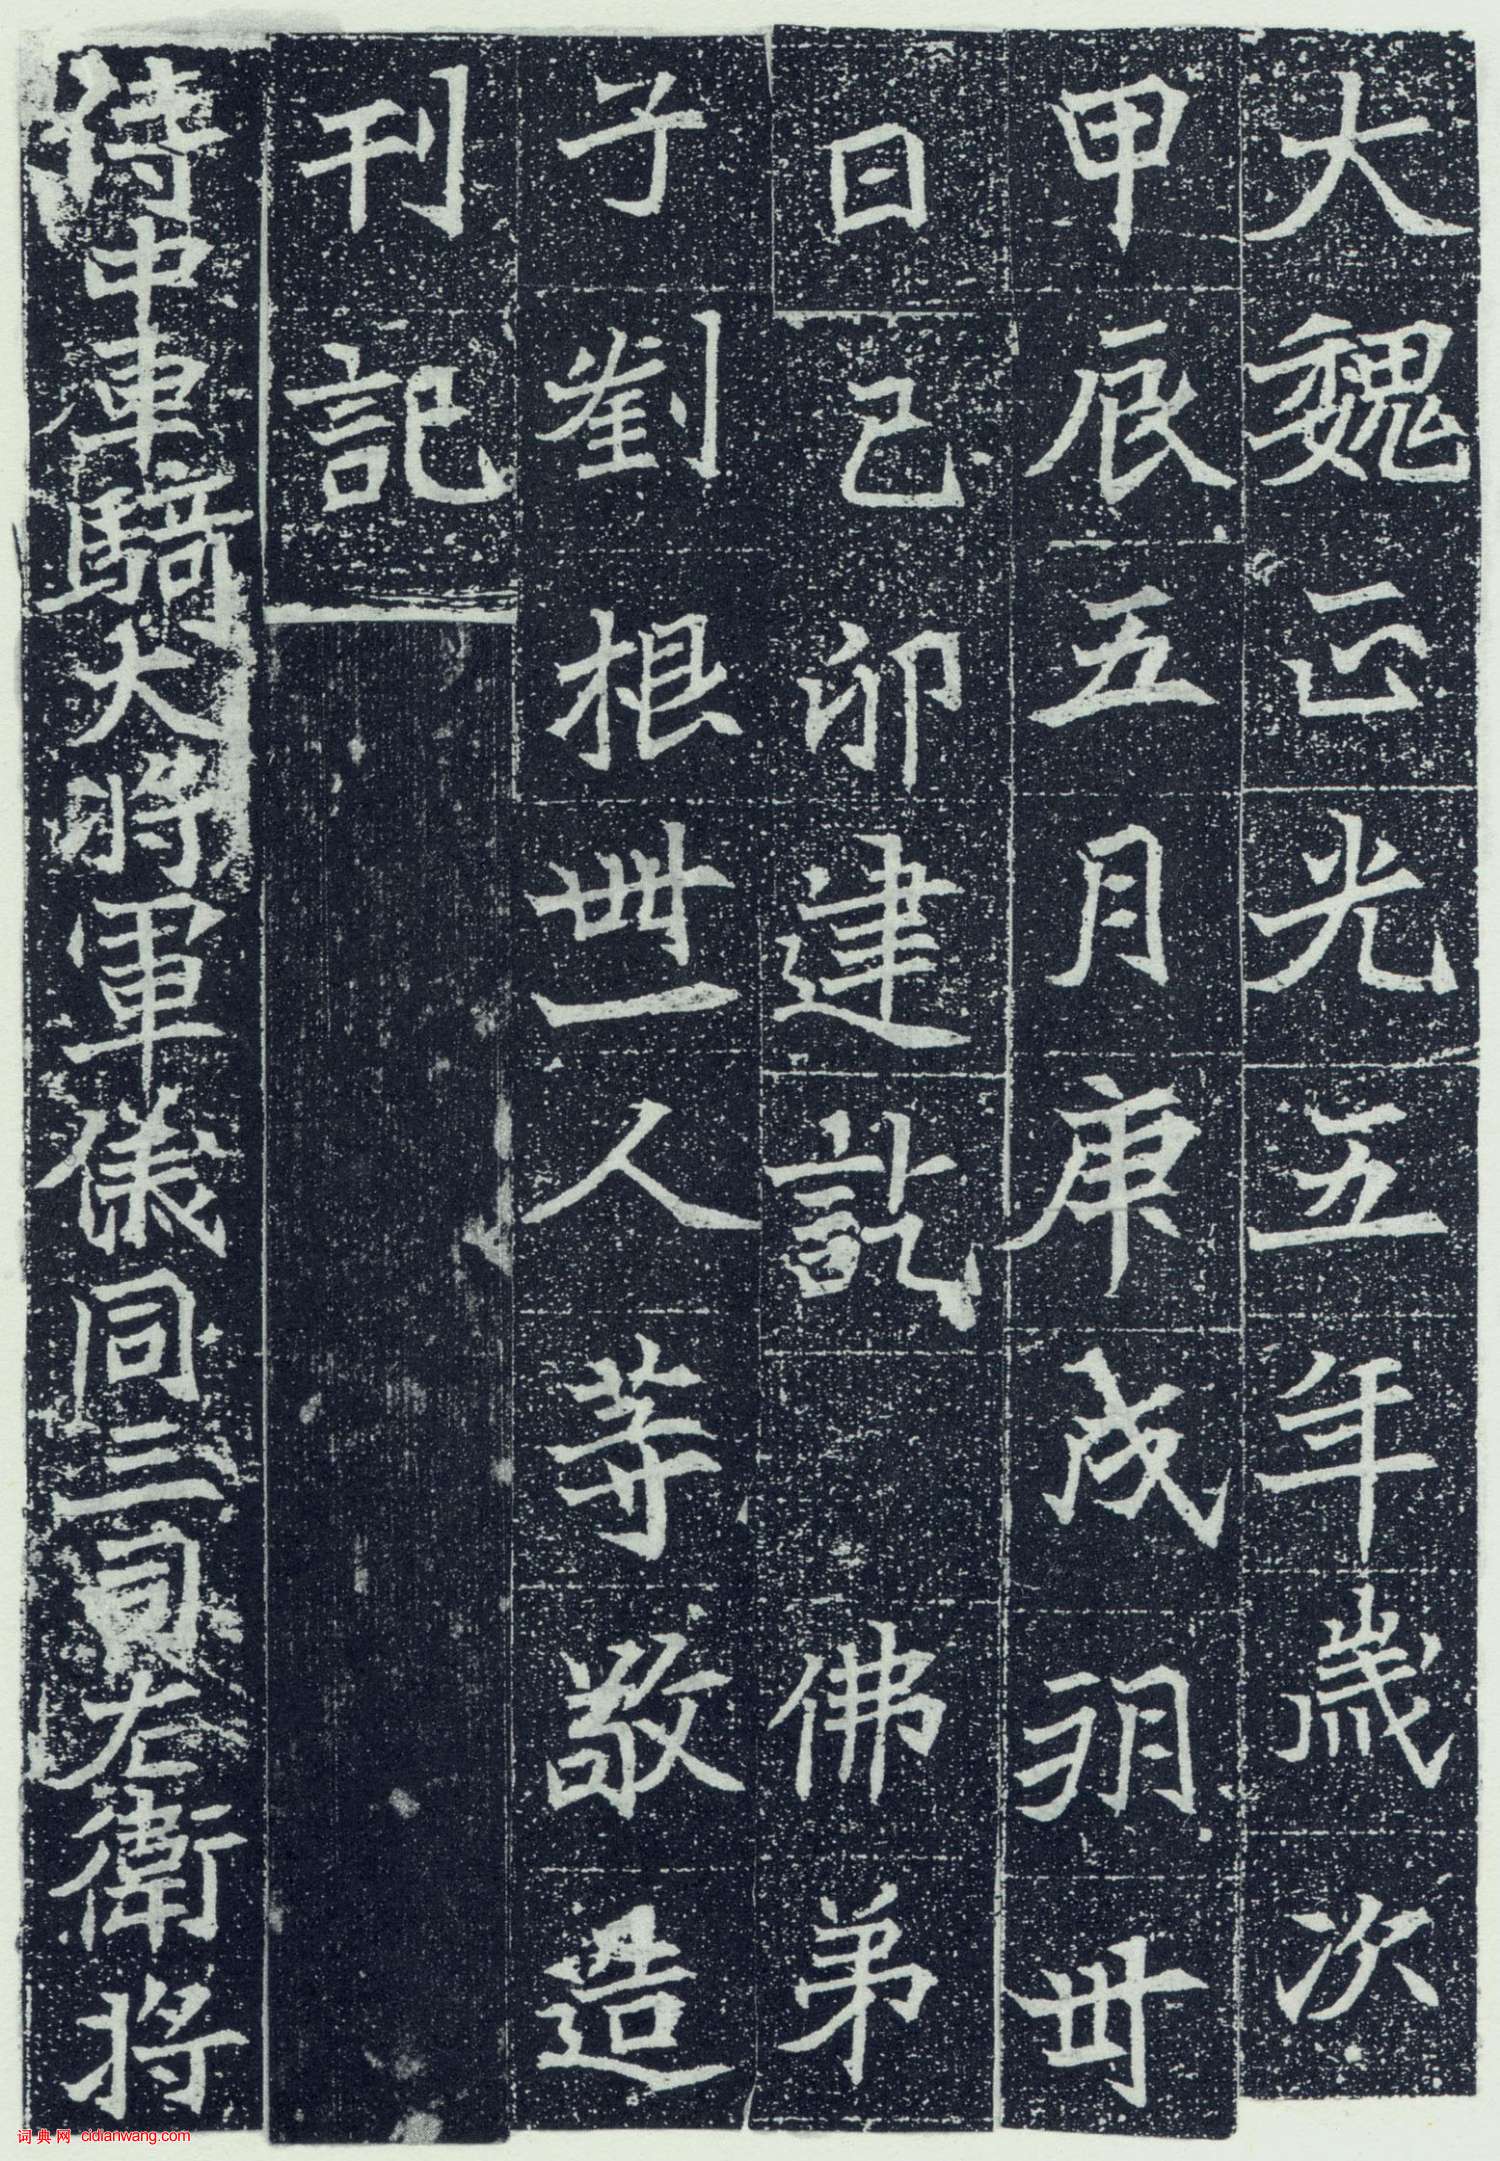 大魏正光五年歲次
甲辰五月庚戌朔卅
日己卯建訖 佛弟
子劉根卌一人等敬造
刊記
侍中車騎大將軍儀同三司左衛將
词典网 cidianwang.com